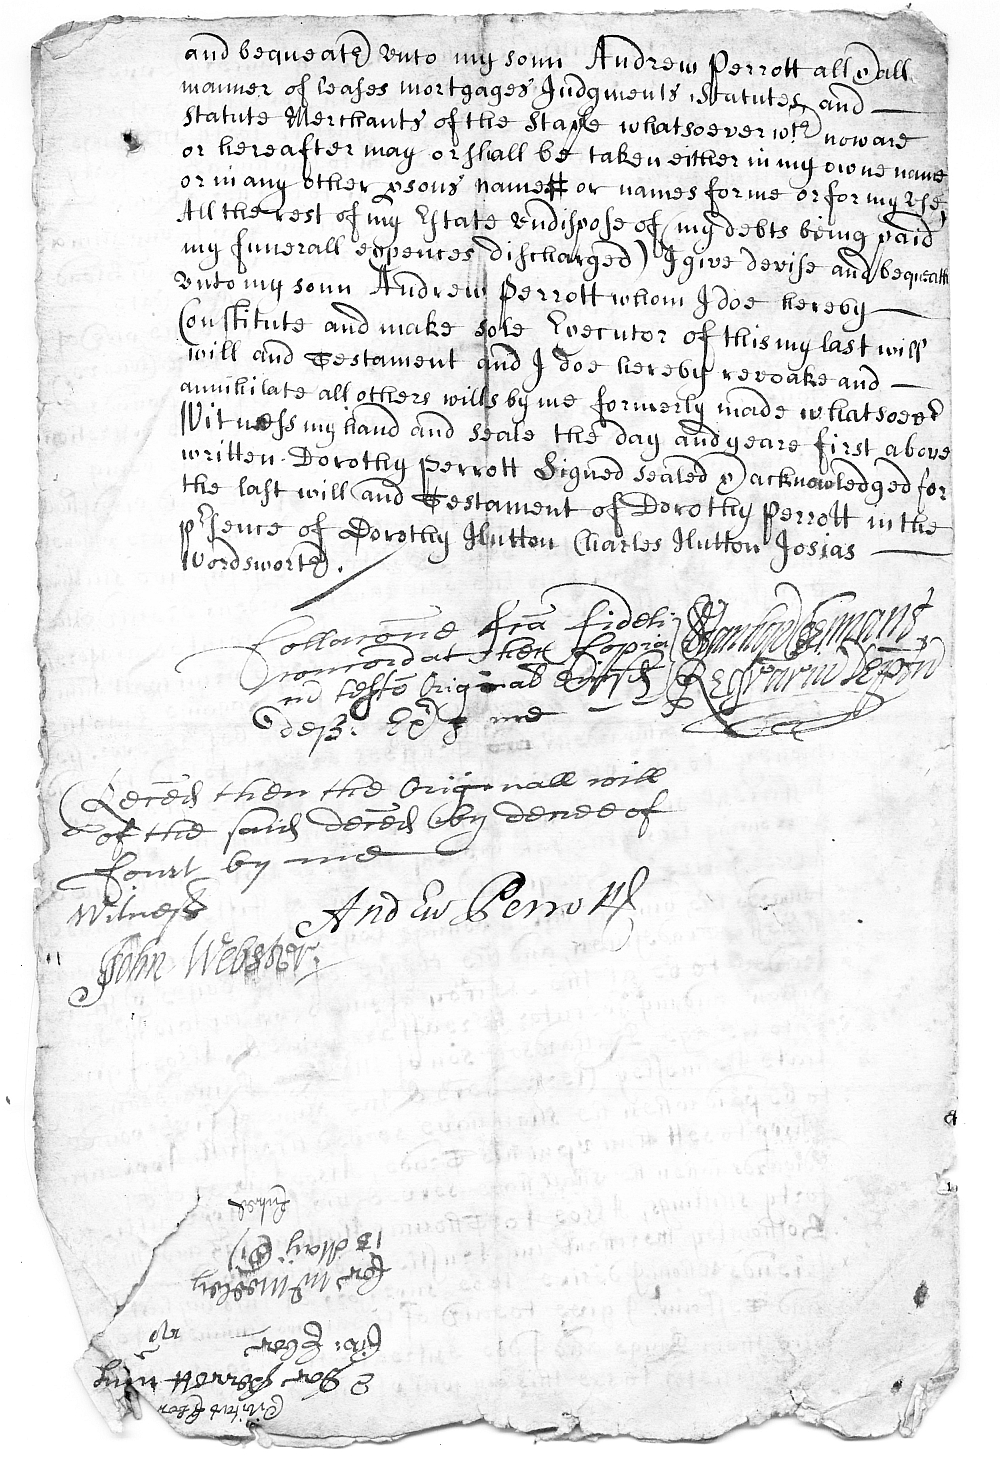 and bequeath unto my sonn Andrew Perrott all & all
manner of leases mortgages Judgments Statutes and
statute Merchants of the Staple whatsoever wch noware
or hereafter may or shall be taken either in my owne name
or in any other psons name or names for me or for my use,
All the rest of my Estate undispose of (my debts being paid
my funerall expences discharged) I give devise and bequeath
unto my sonn Andrew Perrott whom I doe hereby
Constitute and make sole Executor of this my last will
will and Testament and I doe hereby revoake and
annihilate all others wills by me formerly made whatsoevr
Witness my hand and seale the day and yeare first above
written. Dorothy Perrott Signed sealed & acknowledged for
the last will and Testament of Dorothy Perrott in the
prsence of Dorothy Hutton Charles Hutton Josias
Wordsworth.
Collacone fca fideli
concordat hec Copia
cu testo Original
me
Reced then the Originall will
of the said deced by decree of
Court by me
Witness Andrew Perrott
John Webster
13 May
Dor Perrott